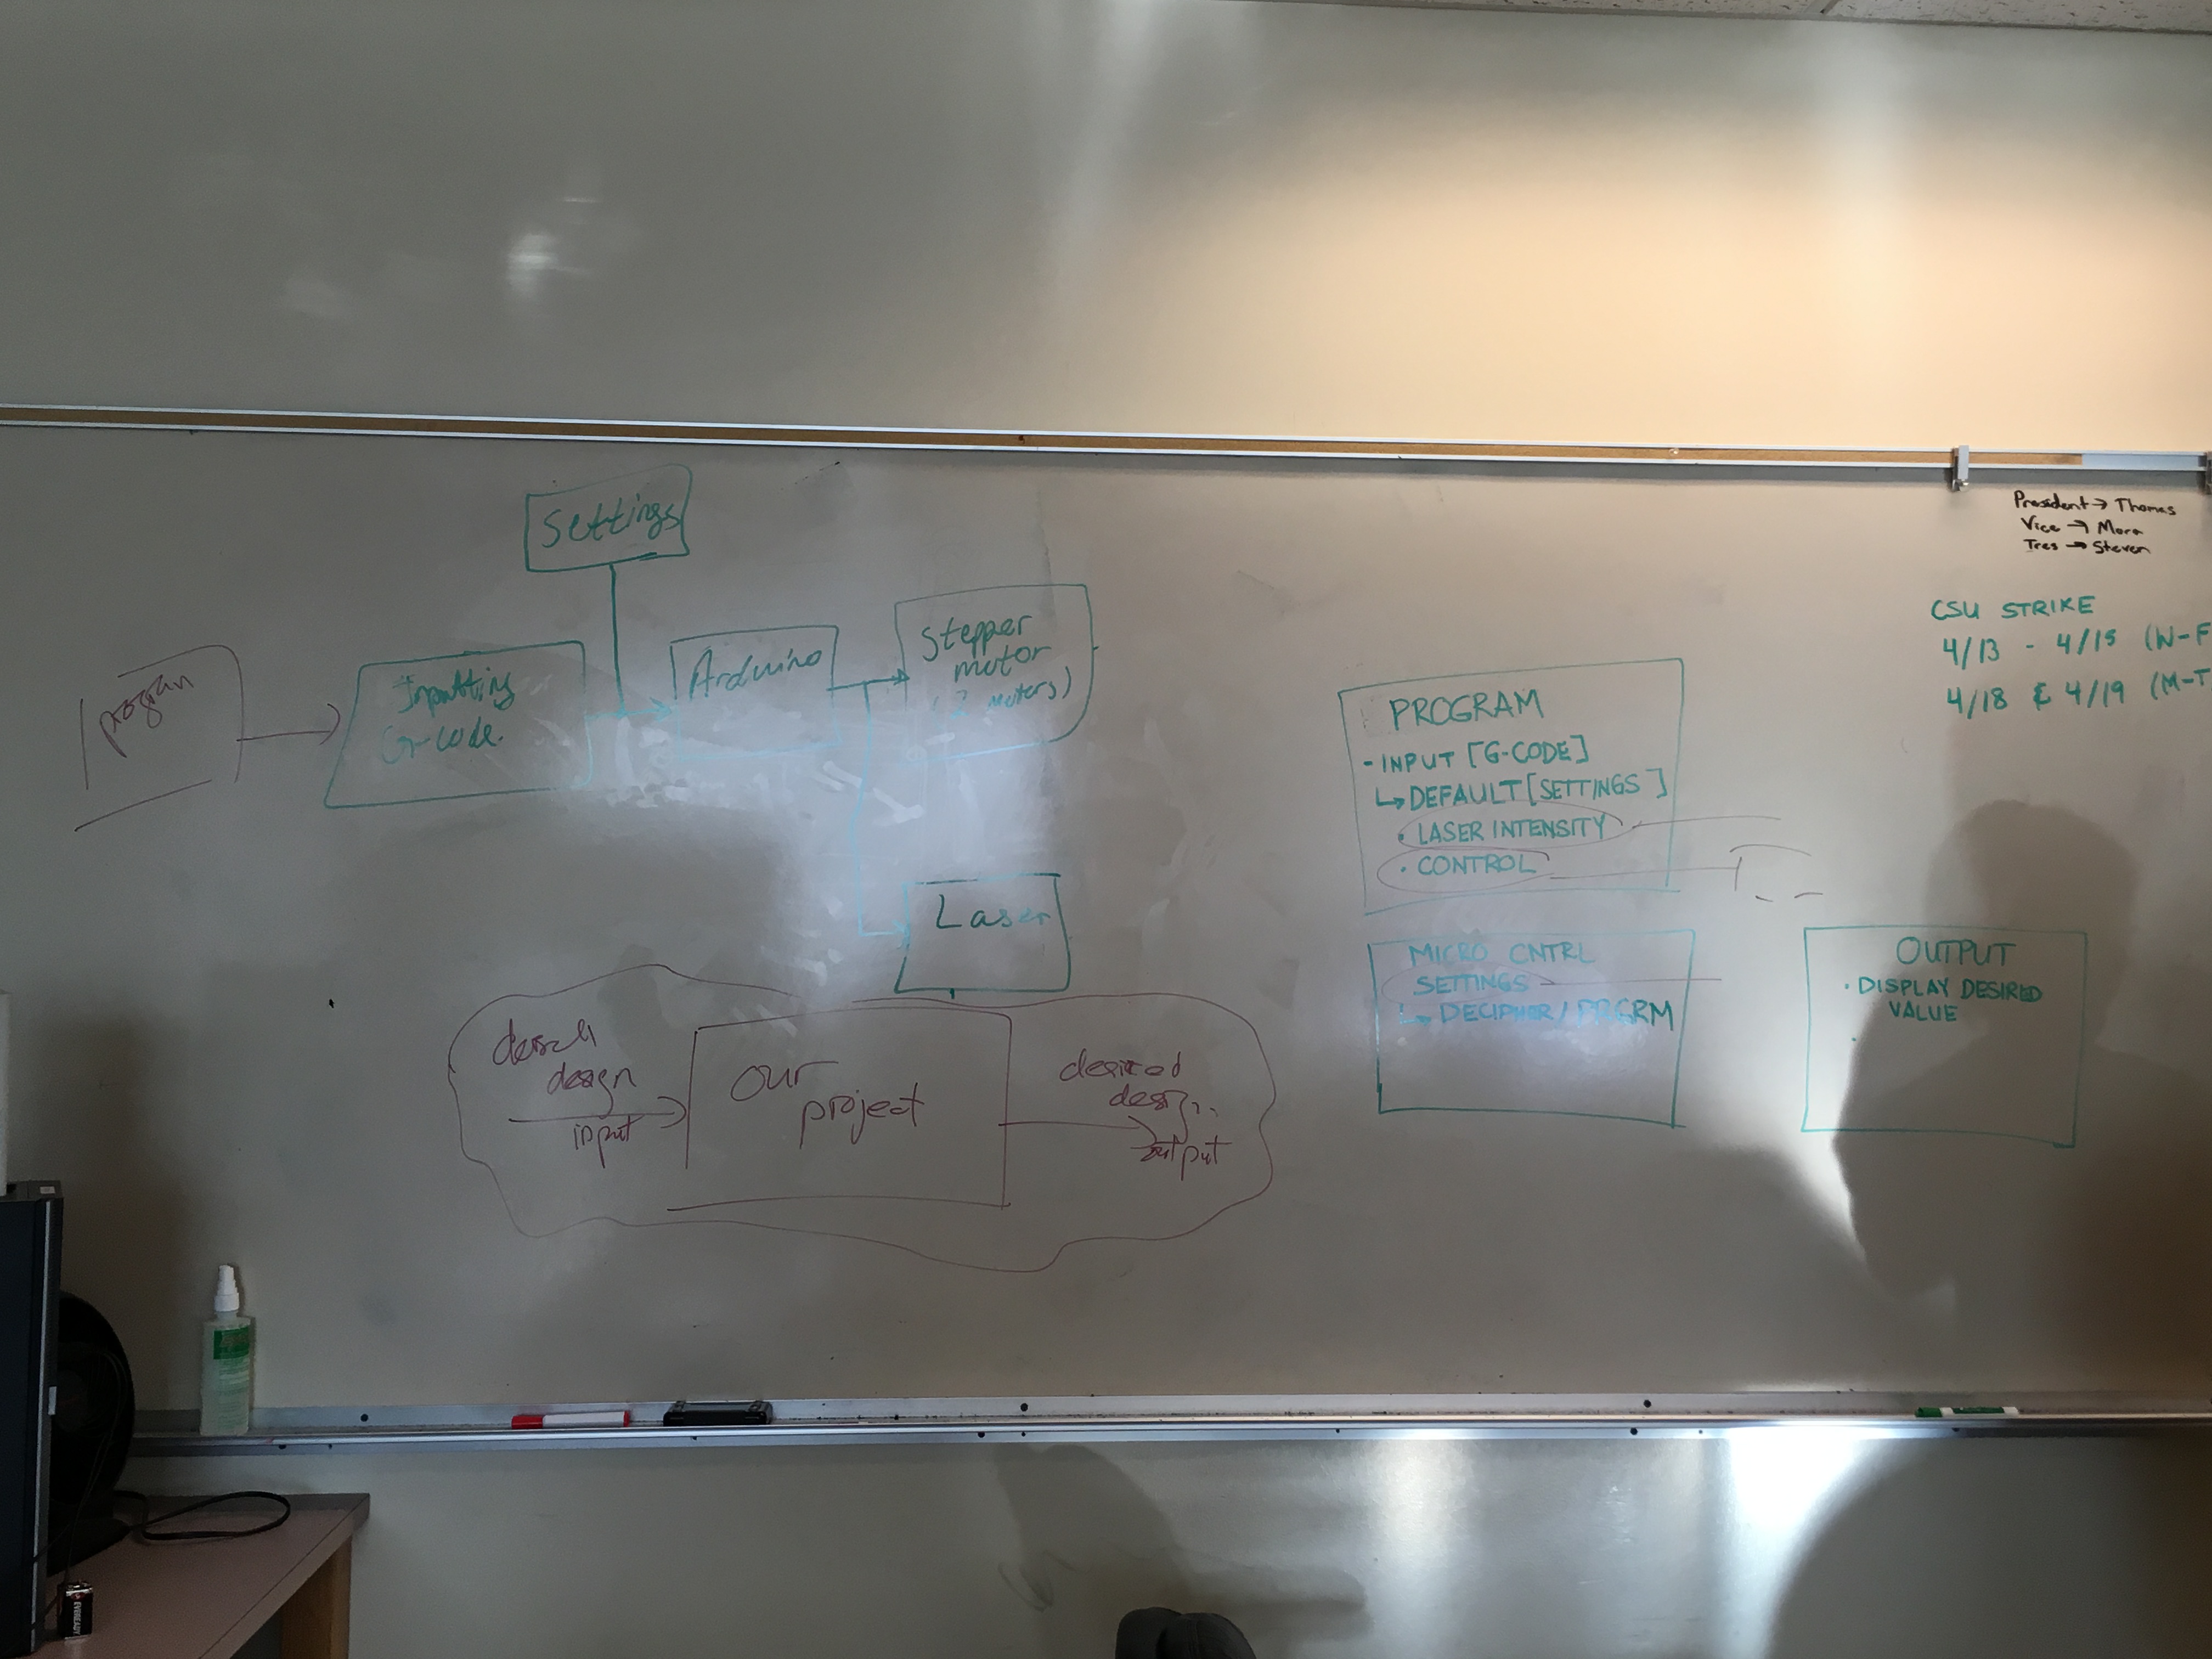 Settings
program
Inputting
G-code.
Arduino
Stepper
motor
(2 motors)
Laser
design
input
our
project
desired
output
PROGRAM
- INPUT [G-CODE]
↳ DEFAULT [SETTINGS]
• LASER INTENSITY
• CONTROL
MICRO CNTRL
SETTINGS
↳ DECIPHER / PRGRM
OUTPUT
• DISPLAY DESIRED
VALUE
President → Thomas
Vice → Mora
Tres → Steven
CSU STRIKE
4/13 - 4/15 (W-F
4/18 & 4/19 (M-T
EVEREADY